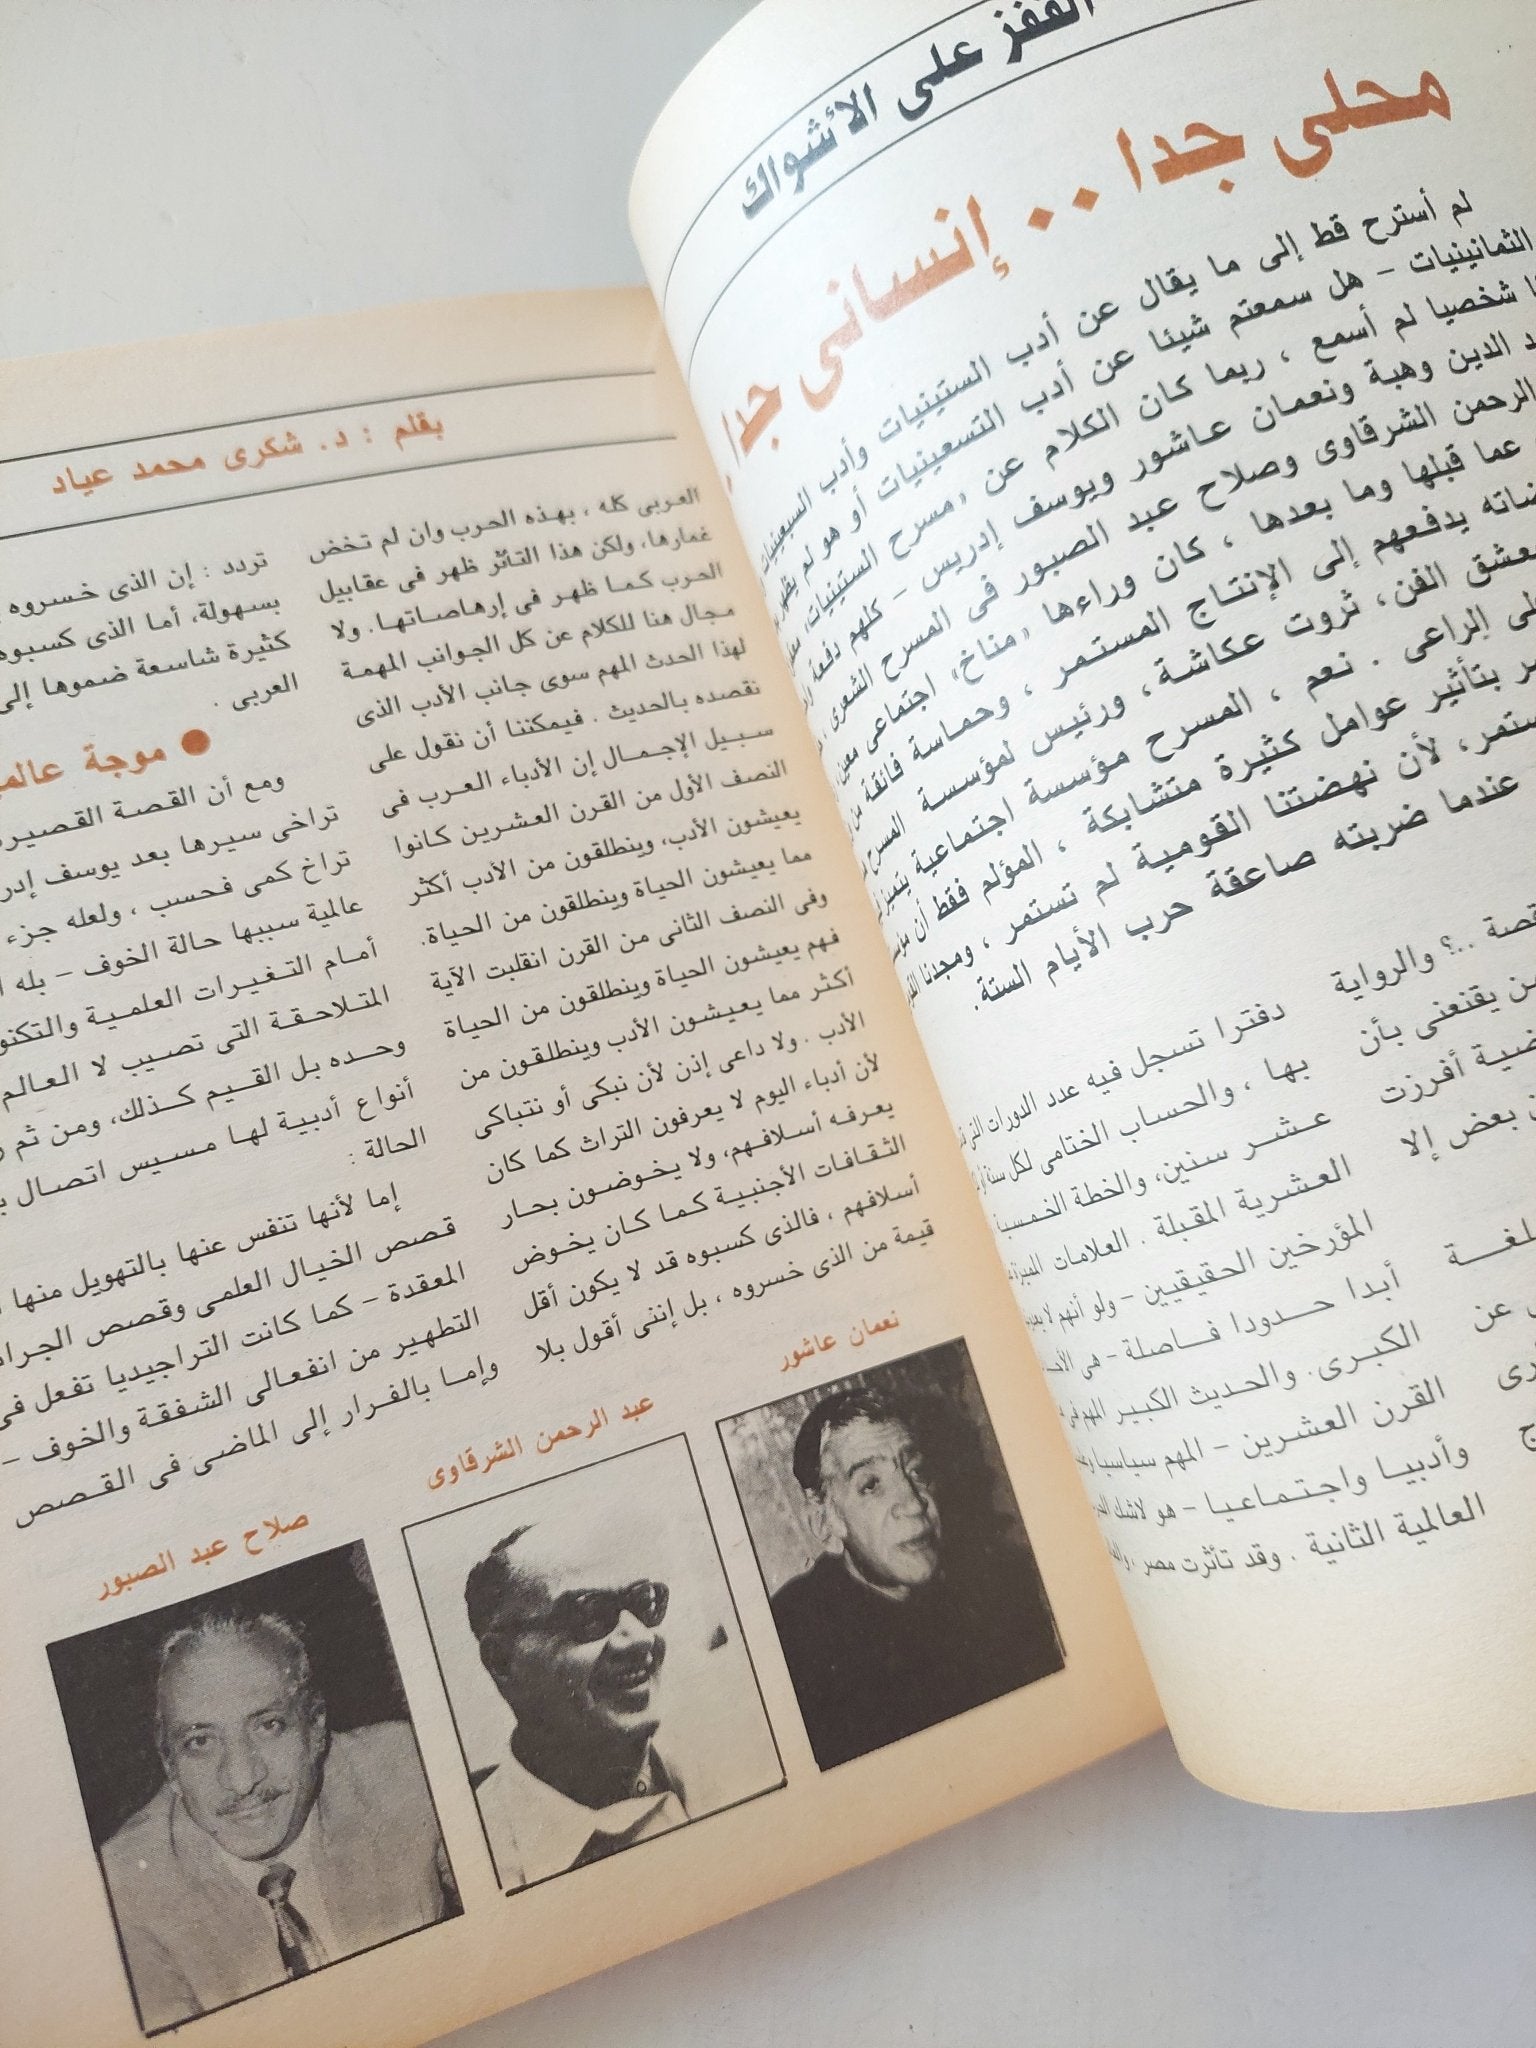 القفز على الأشواك
محلى جدا .. إنسانى جدا
لم أسترح قط إلى ما يقال عن أدب الستينيات وأدب السبعينيات
الثمانينيات - هل سمعتم شيئا عن أدب التسعينيات أو هو لم يظهر
شخصيا لم أسمع ، ربما كان الكلام عن «مسرح الستينيات»
الدين وهبة ونعمان عاشور ويوسف إدريس - كلهم دفعة
الرحمن الشرقاوى وصلاح عبد الصبور فى المسرح الشعرى
عما قبلها وما بعدها ، كان وراءها «مناخ» اجتماعى معين
يدفعهم إلى الإنتاج المستمر ، وحماسة فائقة
الفن ، ثروت عكاشة ، ورئيس لمؤسسة المسرح
الراعى . نعم ، المسرح مؤسسة اجتماعية
بتأثير عوامل كثيرة متشابكة ، المؤلم فقط أن
لأن نهضتنا القومية لم تستمر ، ومجدنا
عندما ضربته صاعقة حرب الأيام الستة.
والرواية
يقنعنى بأن
أفرزت
بعض إلا
عن
دفترا تسجل فيه عدد الدورات التى
بها ، والحساب الختامى لكل سنة أو
عشر سنين، والخطة الخمسية
العشرية المقبلة . العلامات المميزة
المؤرخين الحقيقيين - ولو أنهم لا
أبدا حدودا فاصلة - هى
الكبرى. والحديث الكبير المهم فى
القرن العشرين - المهم سياسيا
وأدبيا واجتماعيا - هو لاشك
العالمية الثانية . وقد تأثرت مصر ،
بقلم : د. شكرى محمد عياد
العربى كله ، بهذه الحرب وان لم تخض
غمارها، ولكن هذا التأثر ظهر فى عقابيل
الحرب كما ظهر فى إرهاصاتها. ولا
مجال هنا للكلام عن كل الجوانب المهمة
لهذا الحدث المهم سوى جانب الأدب الذى
نقصده بالحديث . فيمكننا أن نقول على
سبيل الإجمال إن الأدباء العرب فى
النصف الأول من القرن العشرين كانوا
يعيشون الأدب، وينطلقون من الأدب أكثر
مما يعيشون الحياة وينطلقون من الحياة.
وفى النصف الثانى من القرن انقلبت الآية
فهم يعيشون الحياة وينطلقون من الحياة
أكثر مما يعيشون الأدب وينطلقون من
الأدب . ولا داعى إذن لأن نبكى أو نتباكى
لأن أدباء اليوم لا يعرفون التراث كما كان
يعرفه أسلافهم، ولا يخوضون بحار
الثقافات الأجنبية كما كان يخوض
أسلافهم ، فالذى كسبوه قد لا يكون أقل
قيمة من الذى خسروه ، بل إننى أقول بلا
تردد : إن الذى خسروه
بسهولة، أما الذى كسبوه
كثيرة شاسعة ضموها إلى
العربى .
● موجة
ومع أن القصة
تراخى سيرها بعد يوسف
تراخ كمى فحسب ، ولعله جزء
عالمية سببها حالة الخوف - بله
أمام التغيرات العلمية
المتلاحقة التى تصيب لا العالم
وحده بل القيم كذلك، ومن ثم
أنواع أدبية لها مسيس اتصال
الحالة :
إما لأنها تنفس عنها بالتهويل منها
قصص الخيال العلمى وقصص
المعقدة - كما كانت التراجيديا تفعل فى
التطهير من انفعالى الشفقة والخوف -
وإما بالفرار إلى الماضى فى القصص
نعمان عاشور
عبد الرحمن الشرقاوى
صلاح عبد الصبور